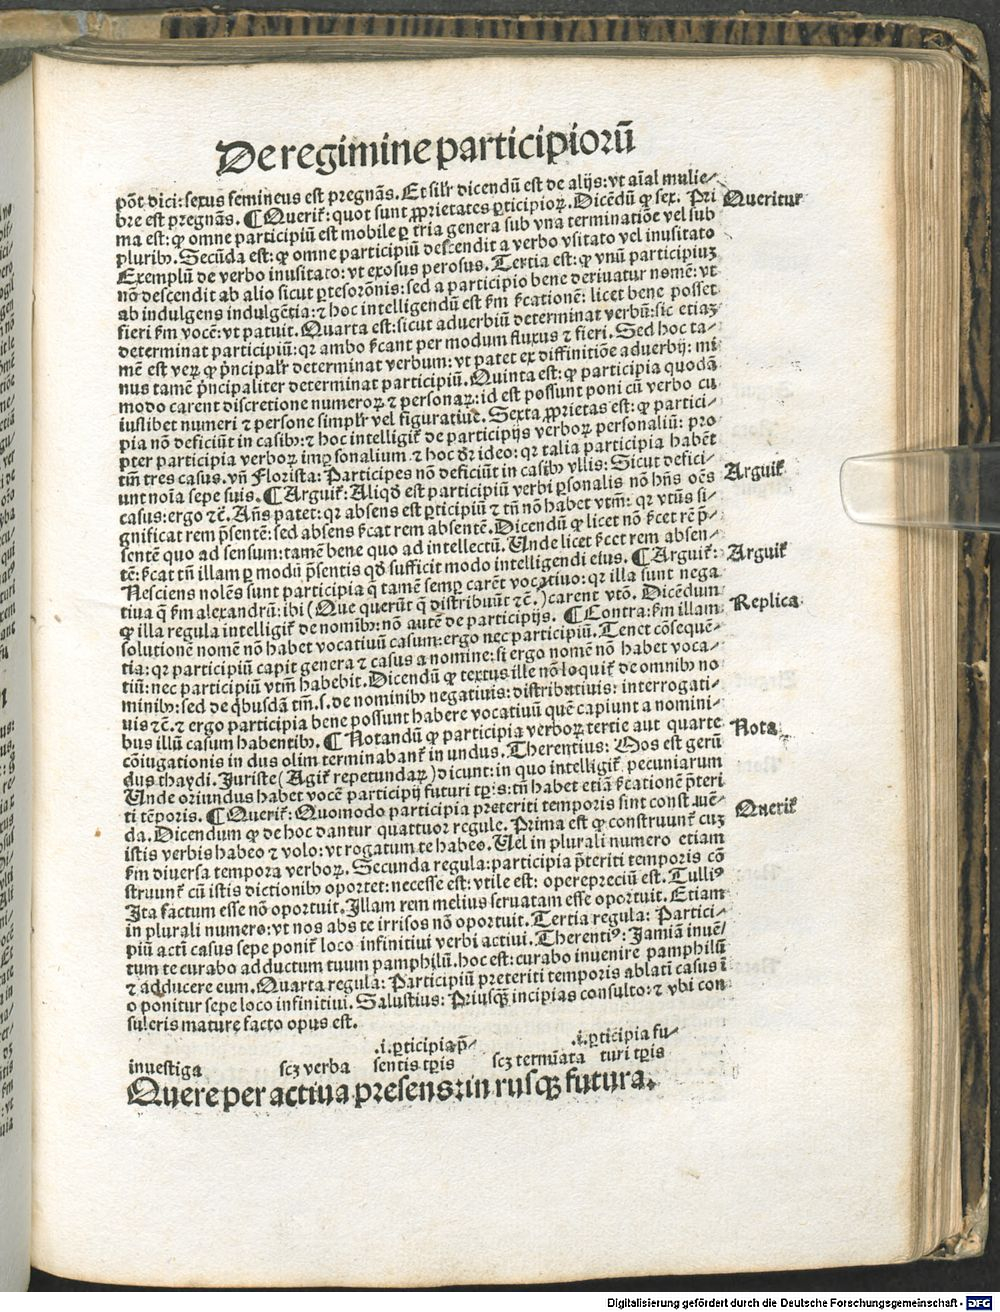 De regimine participiorū
põt dici: sexus femineus est pregnãs. Et silr dicendū est de alijs: vt aĩal mulie⸗
bre est pregnãs. ¶ Querit̃: quot sunt ꝓprietates ꝑticipioꝝ. Dicẽdū ꝙ sex. Pri Queritur
ma est: ꝙ omne participiū est mobile ꝑ tria genera sub vna terminatiõe vel sub
pluribꝰ. Secūda est: ꝙ omne participiū descendit a verbo vsitato vel inusitato
Exemplū de verbo inusitato: vt exosus perosus. Tertia est: ꝙ vnū participiuꝫ
nõ descendit ab alio sicut ꝑtesorõnis: sed a participio bene deriuatur nomẽ: vt
ab indulgens indulgẽtia: ⁊ hoc intelligendū est s̃m s̃cationẽ: licet bene posset
fieri s̃m vocẽ: vt patuit. Quarta est: sicut aduerbiū determinat verbū: sic etiaꝫ
determinat participiū: qꝛ ambo s̃cant per modum fluxus ⁊ fieri. Sed hoc ta⸗
mẽ est veꝝ ꝙ p̃ncipalr̃ determinat verbum: vt patet ex diffinitiõe aduerbij: mi
nus tamẽ p̃ncipaliter determinat participiū. Quinta est: ꝙ participia quodã
modo carent discretione numeroꝝ ⁊ personaꝝ: id est possunt poni cū verbo cu
iuslibet numeri ⁊ persone simplr̃ vel figuratiue. Sexta ꝓprietas est: ꝙ partici⸗
pia nõ deficiūt in casibꝰ: ⁊ hoc intelligit̃ de participijs verboꝝ personaliū: pro
pter participia verboꝝ imꝑsonalium ⁊ hoc dr̃ ideo: qꝛ talia participia habẽt
tm̃ tres casus. vñ Florista: Participes nõ deficiūt in casibꝰ vllis: Sicut defici⸗
unt noĩa sepe suis. ¶ Arguit̃: Aliqd̃ est participiū verbi ꝑsonalis nõ hñs oẽs Arguit̃
casus: ergo ⁊c̃. Añs patet: qꝛ absens est ꝑticipiū ⁊ tñ nõ habet vtm̃: qꝛ vtūs si⸗
gnificat rem p̃sentẽ: sed absens s̃cat rem absentẽ. Dicendū ꝙ licet nõ s̃cet rẽ p̃⸗
sentẽ quo ad sensum: tamẽ bene quo ad intellectū. Unde licet s̃cet rem absen⸗
tẽ: s̃cat tñ illam ꝑ modū p̃sentis qd̃ sufficit modo intelligendi eius. ¶ Arguit̃: Arguit̃
Nesciens nolẽs sunt participia q̃ tamẽ semꝑ carẽt vocatiuo: qꝛ illa sunt nega
tiua q̃ s̃m alexandrū: ibi (Que querūt q̃ distribuūt ⁊c̃.) carent vtõ. Dicẽdum
ꝙ illa regula intelligit̃ de nomibꝰ: nõ autẽ de participijs. ¶ Contra: s̃m illam Replica
solutionẽ nomẽ nõ habet vocatiuū casum: ergo nec participiū. Tenet cõsequẽ⸗
tia: qꝛ participiū capit genera ⁊ casus a nomine: si ergo nomẽ nõ habet voca⸗
tiū: nec participiū vtm̃ habebit. Dicendū ꝙ textus ille nõ loquit̃ de omnibꝰ no
minibꝰ: sed de q̃busdã tm̃. s. de nominibꝰ negatiuis: distributiuis: interrogati⸗
uis ⁊c̃. ⁊ ergo participia bene possunt habere vocatiuū quẽ capiunt a nomini⸗
bus illū casum habentibꝰ. ¶ Notandū ꝙ participia verboꝝ tertie aut quarte Nota
cõiugationis in dus olim terminabant̃ in undus. Therentius: Mos est gerū
dus thaydi. Juriste (Agit̃ repetundaꝝ) dicunt: in quo intelligit̃ pecuniarum
Unde oriundus habet vocẽ participij futuri tꝑis: tñ habet etiã s̃cationẽ p̃teri
ti tẽporis. ¶ Querit̃: Quomodo participia preteriti temporis sint construẽ⸗ Querit̃
da. Dicendum ꝙ de hoc dantur quattuor regule. Prima est ꝙ construunt̃ cuꝫ
istis verbis habeo ⁊ volo: vt rogatum te habeo. Uel in plurali numero etiam
s̃m diuersa tempora verboꝝ. Secunda regula: participia p̃teriti temporis cõ
struunt̃ cū istis dictionibꝰ oportet: necesse est: vtile est: operepreciū est. Tulliꝰ
Jta factum esse nõ oportuit. Jllam rem melius seruatam esse oportuit. Etiam
in plurali numero: vt nos abs te irrisos nõ oportuit. Tertia regula: Partici⸗
piū actī casus sepe ponit̃ loco infinitiui verbi actiui. Therentiꝰ: Jamiã inuẽ⸗
tum te curabo adductum tuum pamphilū. hoc est: curabo inuenire pamphilū
⁊ adducere eum. Quarta regula: Participiū preteriti temporis ablatī casus ĩ
o ponitur sepe loco infinitiui. Salustius: Priusq̃ incipias consulto: ⁊ vbi con
suleris mature facto opus est.
.i. ꝑticipia p̃⸗ .i. ꝑticipia fu⸗
inuestiga scꝫ verba sentis tꝑis scꝫ termīata turi tꝑis
Quere per actiua presens: in rusqꝫ futura.
Digitalisierung gefördert durch die Deutsche Forschungsgemeinschaft - DFG